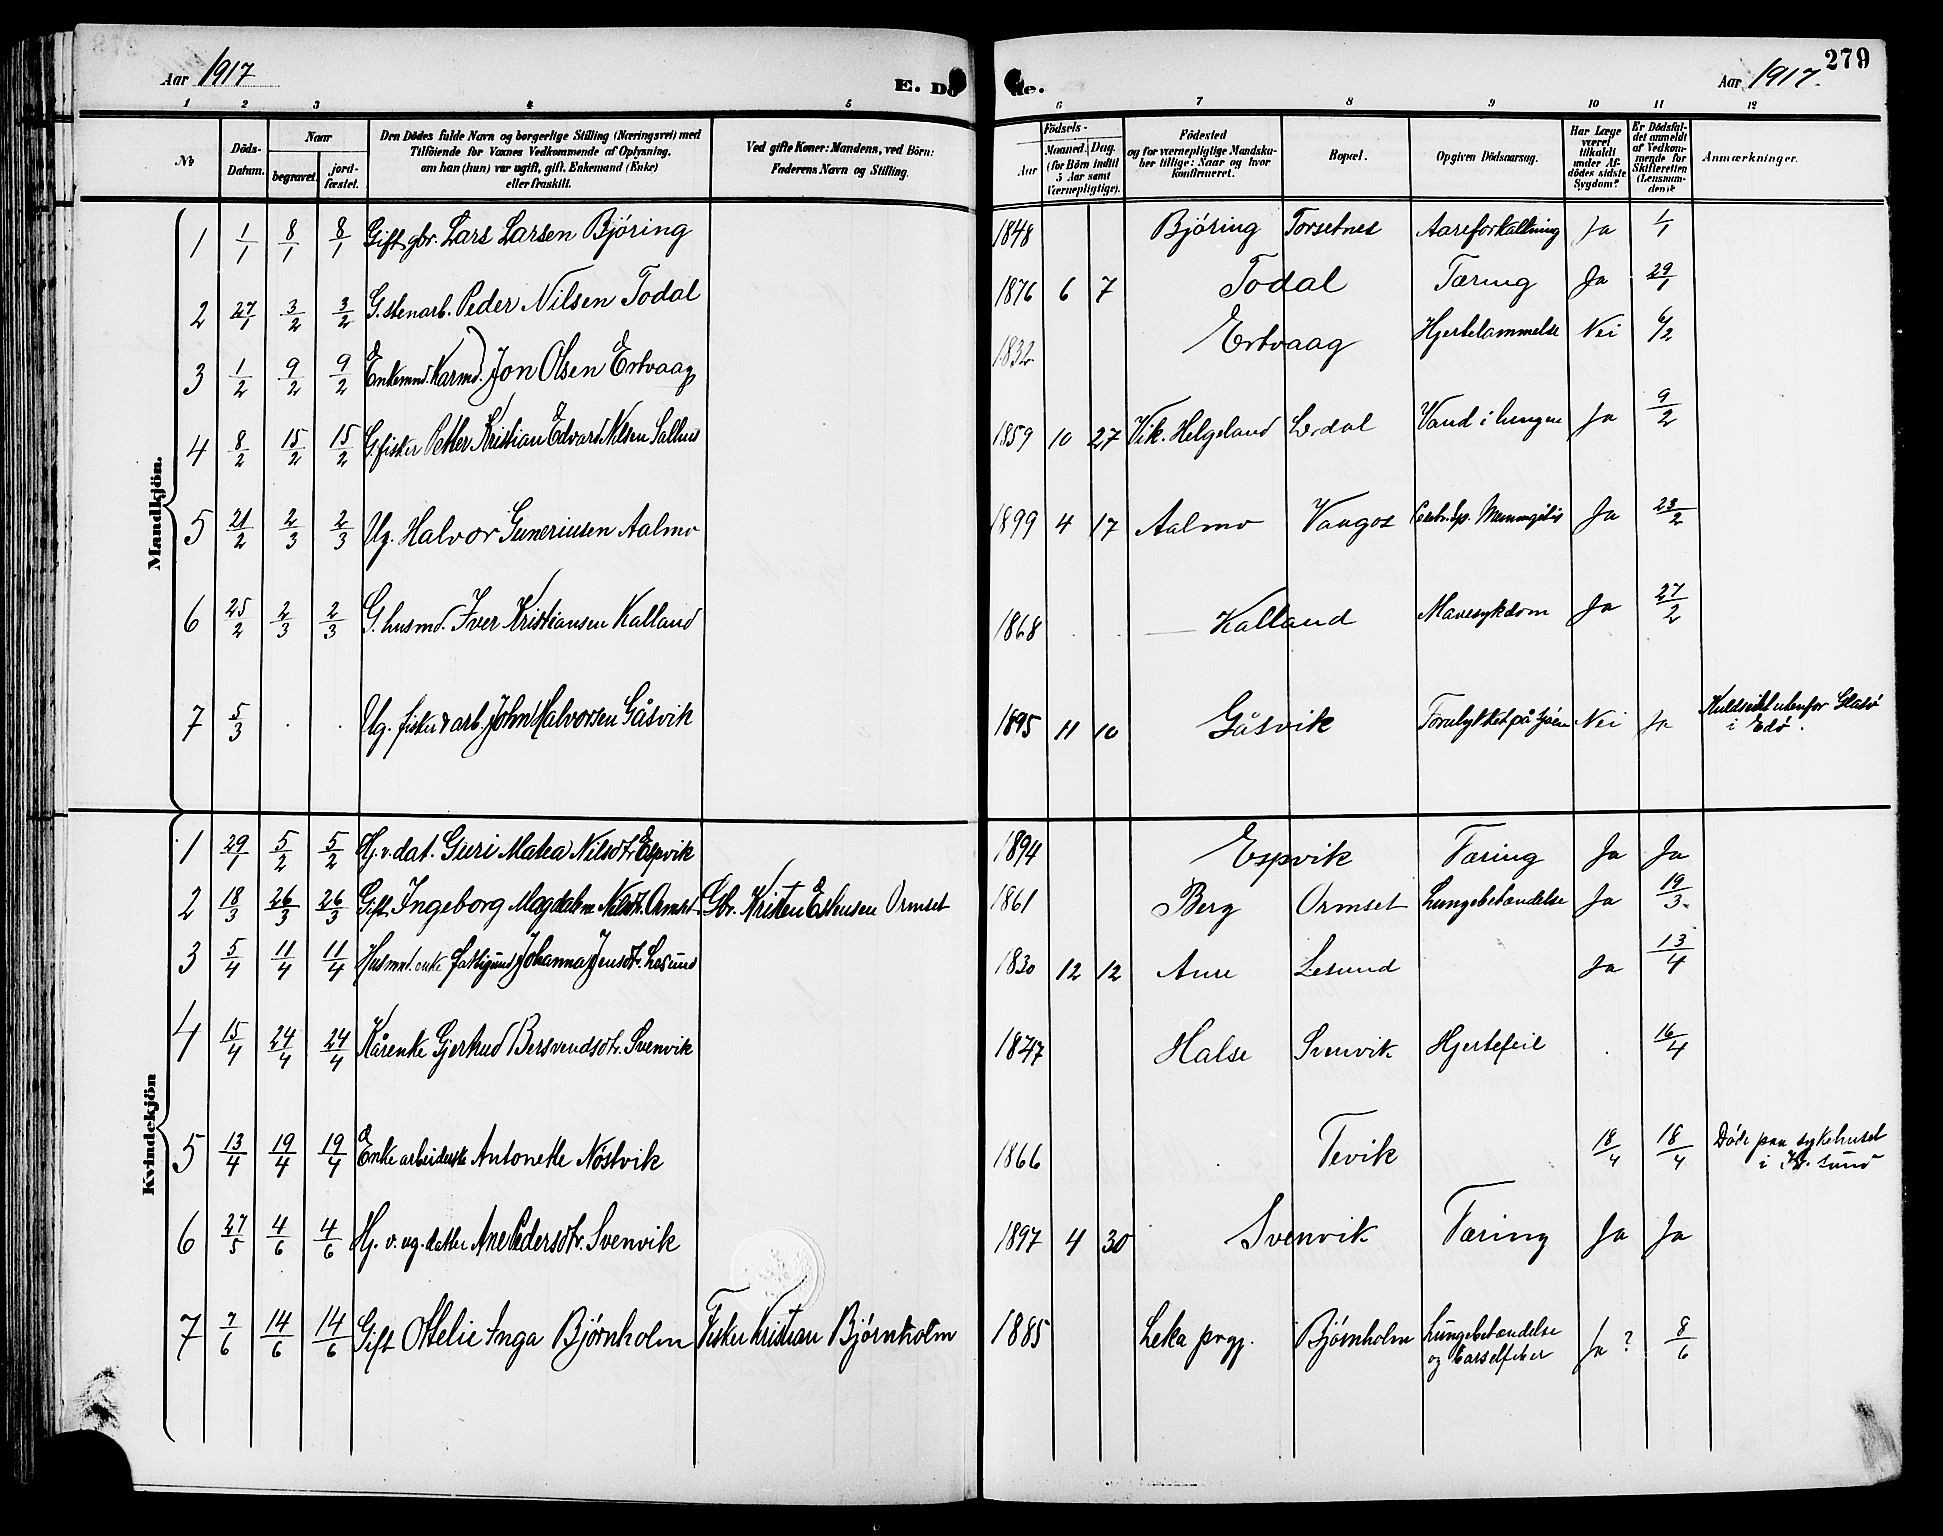 279
Aar 1917 E. Dø de. Aar 1917.
1 2 3 4 5 6 7 8 9 10 11 12
No
Döds-Datum.
Naar
begravet.
jord-fæstet.
Den Dödes fulde Navn og borgerlige Stilling (Næringsvei) med
Tilföiende for Voxnes Vedkommende af Oplysning,
om han (hun) var ugift, gift, Enkemand (Enke)
eller fraskilt.
Ved gifte Koner: Mandens, ved Börn:
Faderens Navn og Stilling.
Födsels-
Aar
Maaned. Dag.
(for Börn indtil
5 Aar samt
Værnepligtige).
Födested
og for værnepligtige Mandsku-
ber tillige: Naar og hvor
konfirmeret.
Bopæl.
Opgiven Dödsaarsag.
Har Læge
været
tilkaldt
under Af-
dödes sidste
Sygdom?
Er Dödsfal-
det anmeldt
af Vedkom-
mende for
Skifteretten
(Lensman-
den)?
Anmærkninger.
Mandkjön.
1 1/1 8/1 8/1 Gift gbr. Lars Larsen Björing 1848 Björing Torsetnes Aareforkalkning Ja 1/1
2 27/1 3/2 3/2 G. stenarb. Peder Nilsen Todal 1876 6 7 Todal Tæring Ja 29/1
3 1/2 9/2 9/2 Enkemnd. Karmd. Jon Olsen Ertvaag 1832 Ertvaag Hjertelammelse Nei 6/2
4 8/2 15/2 15/2 G. fisker Petter Kristian Edvard Nilsen Salhus 1859 10 27 Vik. Helgeland Lerdal Vand i lungen Ja 9/2
5 21/2 2/3 2/3 Ug. Halvor Guneriusen Aalmo 1899 4 17 Aalmo Vaagos Cerebr. sp. Meningitis Ja 23/2
6 25/2 2/3 2/3 G. husmd. Iver Kristiansen Kalland 1868 Kalland Mavesykdom Ja 27/2
7 5/3 Ug. fisker & arb. John Halvorsen Gåsvik 1895 11 10 Gåsvik Forulykket på sjöen Nei Ja Kuldseilt utenfor
i Edø.
Kvindekjön
1 29/1 5/2 5/2 Hj. v. dat. Guri Malea Nilsdtr. Espvik 1894 Espvik Tæring Ja Ja
2 18/3 26/3 26/3 Gift Ingeborg Magdalene Nilsdtr. Ormset Gbr. Kristen Estensen Ormset 1861 Berg Ormset Lungebetændelse Ja 19/3.
3 5/4 11/4 11/4 Husmnd. enke fattigund. Johanna Jensdtr. Lesund 1830 12 12 Aure Lesund Ja 13/4
4 15/4 24/4 24/4 Kårenke Gjertrud Bersvendsdtr. Svenvik 1847 Halse Svenvik Hjertefeil 16/4
5 13/4 19/4 19/4 Enke arbeiderske Antonette Nöstvik 1866 Tevik 18/4 18/4 Döde paa sykehuset
i Kr. sund
6 27/5 4/6 4/6 Hj. v. ug. datter Ane Pedersdtr. Svenvik 1897 4 30 Svenvik Tæring Ja Ja
7 7/6 14/6 14/6 Gift Ottelie Inga Bjørnholm Fisker Kristian Bjørnholm 1885 Leka prgj. Bjørnholm Lungebetændelse
og barselfeber Ja ? 8/6